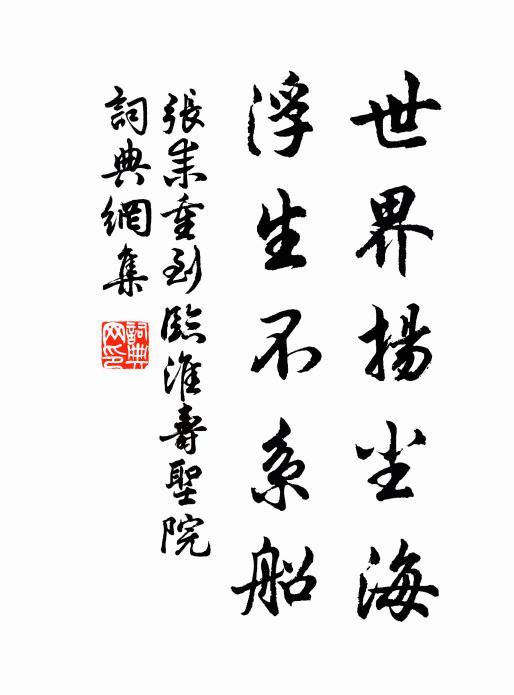 世界揚尘海
浮生不系船
張耒重到臨淮壽聖院
詞典網集
詞典
网印